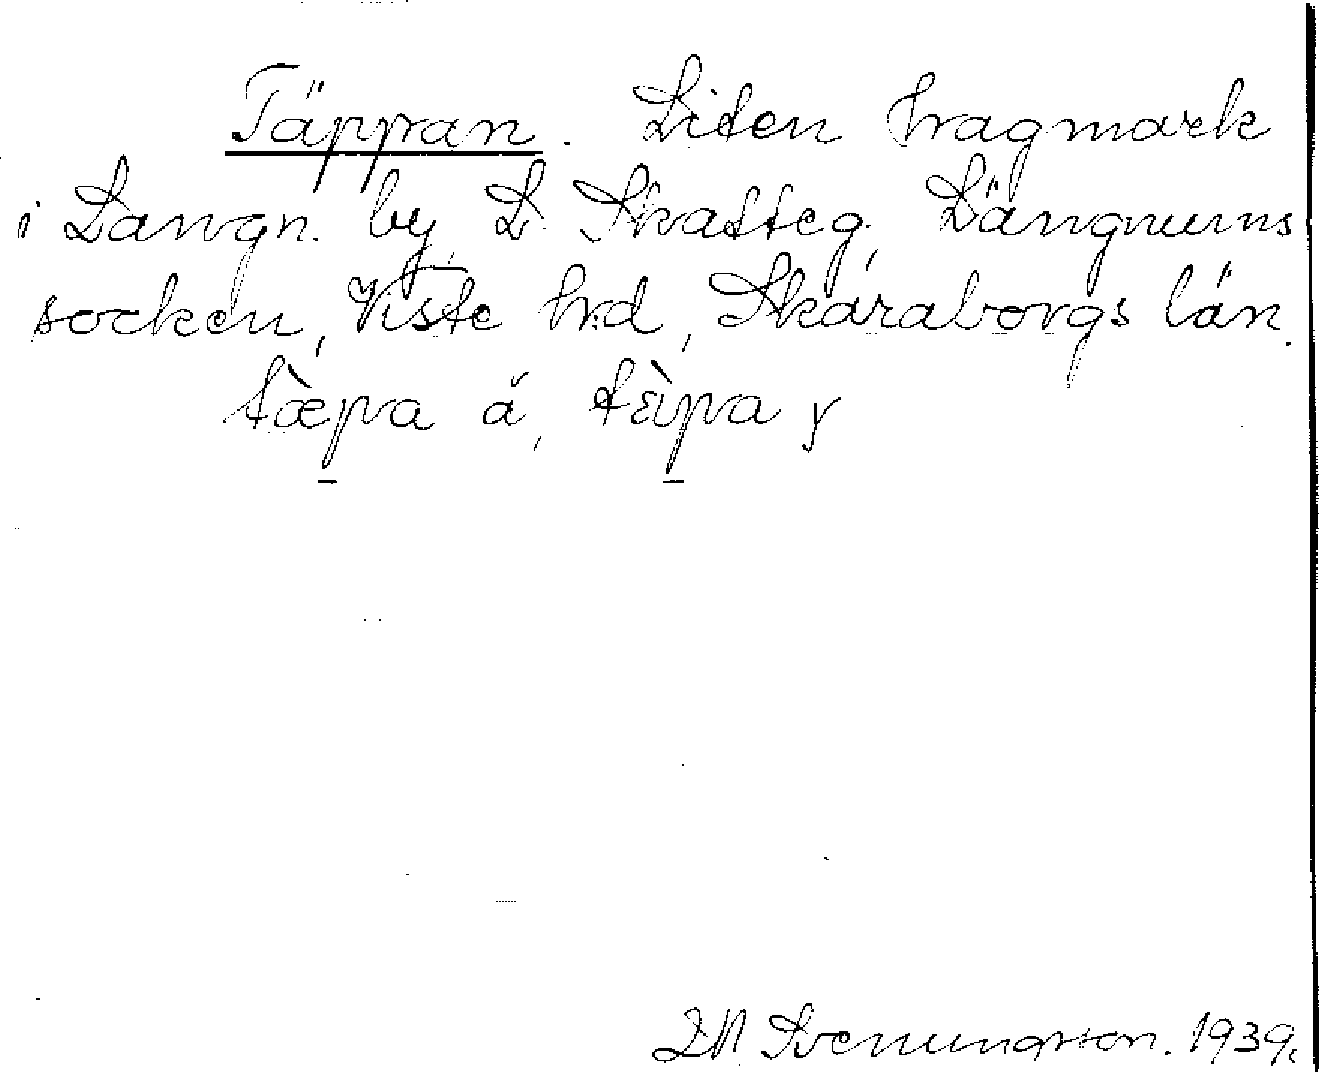 Täppan. Liten hagmark
i Längn. by, L. Skatteg, Längnums
socken, Viste hd, Skaraborgs län.
tæ̀pa ä, tɛ̀pa y
Svenungsson. 1939.